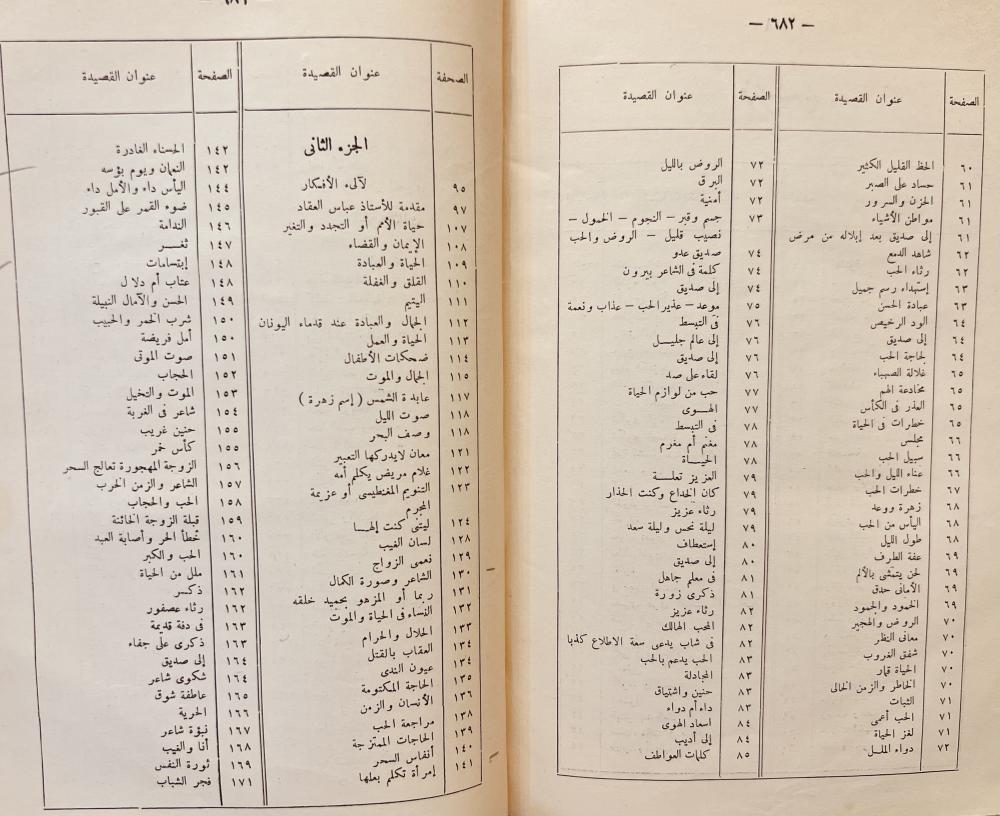 — ٦٨٢ —
الصفحة عنوان القصيدة
٦٠ الحظ القليل الكثير
٦١ حساد على الصبر
٦١ الحزن والسرور
٦١ مواطن الأشياء
٦١ إلى صديق بعد إبلاله من مرض
٦٢ شاهد الدمع
٦٢ رثاء الحب
٦٣ إستهداء رسم جميل
٦٣ عبادة الحسن
٦٤ الود الرخيص
٦٤ إلى صديق
٦٤ لجاجة الحب
٦٥ غلالة الصهباء
٦٥ مخادعة الهم
٦٥ العذر فى الكأس
٦٥ خطرات فى الحياة
٦٦ مجلس
٦٦ سبيل الحب
٦٦ عناء الليل والحب
٦٧ خطرات الحب
٦٨ زهرة ووعد
٦٨ اليأس من الحب
٦٨ طول الليل
٦٩ عفة الطرف
٦٩ لحن يتمشى بالألم
٦٩ الأمانى حدق
٦٩ الخمود والجمود
٧٠ الروض والهجير
٧٠ معانى النظر
٧٠ شفق الغروب
٧٠ الحياة قمار
٧٠ الخاطر والزمن الخالى
٧١ الثبات
٧١ الحب أعمى
٧١ لغز الحياة
٧٢ دواء الملل
الصفحة عنوان القصيدة
٧٢ الروض بالليل
٧٢ البرق
٧٢ أمنية
٧٣ جسم وقبر – النجوم – الخمول –
نصيب قليل – الروض والحب
٧٤ صديق عدو
٧٤ كلمة فى الشاعر بيرون
٧٤ إلى صديق
٧٥ موعد – عذير الحب – عذاب ونعمة
٧٦ فى التبسط
٧٦ إلى عالم جليل
٧٦ إلى صديق
٧٦ لقاء على صد
٧٧ حب من لوازم الحياة
٧٧ الهوى
٧٨ فى التبسط
٧٨ مغنم أم مغرم
٧٨ الحياة
٧٩ العزيز تعلة
٧٩ كان الخداع وكنت الحذار
٧٩ رثاء عزيز
٧٩ ليلة نحس وليلة سعد
٨٠ إستعطاف
٨٠ إلى صديق
٨١ فى معلم جاهل
٨١ ذكرى زورة
٨٢ رثاء عزيز
٨٢ المحب الهالك
٨٢ فى شاب يدعى سعة الاطلاع كذبا
٨٣ الحب يدعم بالحب
٨٣ المجادلة
٨٣ حنين واشتياق
٨٣ داء أم دواء
٨٤ اسعاد الهوى
٨٤ إلى أديب
٨٥ كلمات العواطف
الصحفة عنوان القصيدة
الجزء الثانى
٩٥ لآلىء الأفكار
٩٧ مقدمة للأستاذ عباس العقاد
١٠٧ حياة الأمم أو التجدد والتغير
١٠٨ الإيمان والقضاء
١٠٩ الحياة والعبادة
١١٠ القلق والغفلة
١١١ اليتيم
١١٢ الجمال والعبادة عند قدماء اليونان
١١٣ الحياة والعمل
١١٤ ضحكات الأطفال
١١٥ الجمال والموت
١١٧ عابدة الشمس ( إسم زهرة )
١١٨ صوت الليل
١١٨ وصف البحر
١٢١ معان لايدركها التعبير
١٢٢ غلام مريض يكلم أمه
١٢٣ التنويم المغنطيسى أو عزيمة
المجرم
١٢٤ ليتنى كنت إلها
١٢٨ لسان الغيب
١٢٩ نعمى الزواج
١٣٠ الشاعر وصورة الكمال
١٣١ ربما أو المزهو بحميد خلقه
١٣٢ النساء فى الحياة والموت
١٣٣ الحلال والحرام
١٣٤ العقاب بالقتل
١٣٤ عيون الندى
١٣٥ الحاجة المكتومة
١٣٦ الأنسان والزمن
١٣٨ مراجعة الحب
١٣٩ الحاجات الممتزجة
١٤٠ أنفاس السحر
١٤١ إمرأة تكلم بعلها
الصفحة عنوان القصيدة
١٤٢ الحسناء الغادرة
١٤٢ النعمان ويوم بؤسه
١٤٤ اليأس داء والأمل داء
١٤٥ ضوء القمر على القبور
١٤٦ الندامة
١٤٧ ثغر
١٤٨ إبتسامات
١٤٨ عتاب أم دلال
١٤٩ الحسن والآمال النبيلة
١٥٠ شرب الخمر والحبيب
١٥٠ أمل فريضة
١٥١ صوت الموتى
١٥٢ الحجاب
١٥٣ الموت والتخيل
١٥٤ شاعر فى الغربة
١٥٥ حنين غريب
١٥٥ كأس خمر
١٥٦ الزوجة المهجورة تعالج السحر
١٥٧ الشاعر والزمن الخرب
١٥٨ الحب والحجاب
١٥٩ قبلة الزوجة الخائنة
١٦٠ خطأ الحر وأصابة العبد
١٦٠ الحب والكبر
١٦١ ملل من الحياة
١٦٢ ذكر
١٦٢ رثاء عصفور
١٦٣ فى دفة قديمة
١٦٣ ذكرى على جفاء
١٦٤ إلى صديق
١٦٤ شكوى شاعر
١٦٥ عاطفة شوق
١٦٦ الحرية
١٦٧ نبؤة شاعر
١٦٨ أنا والغيب
١٦٩ ثورة النفس
١٧١ فجر الشباب